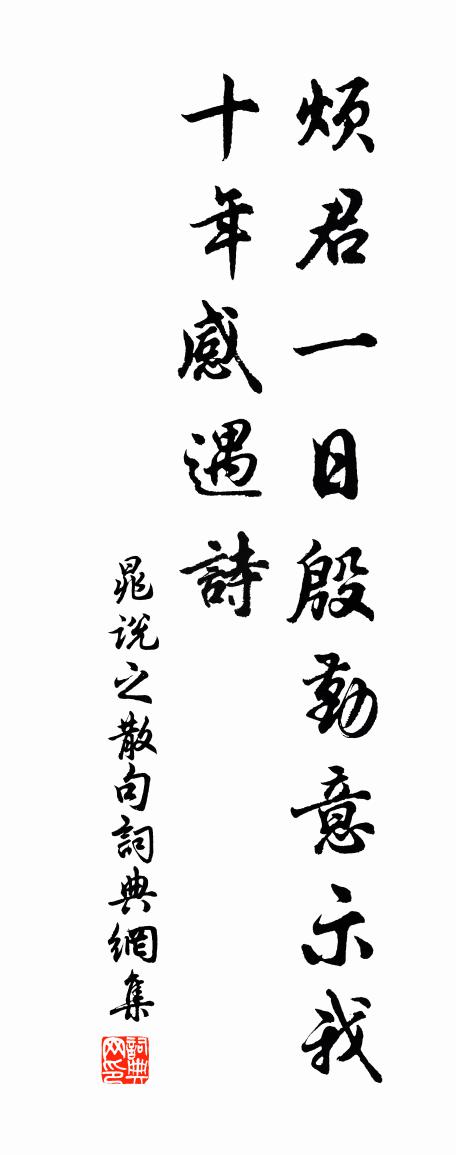 煩君一日殷勤意示我
十年感遇詩
晁說之散句詞典網集
詞典网印